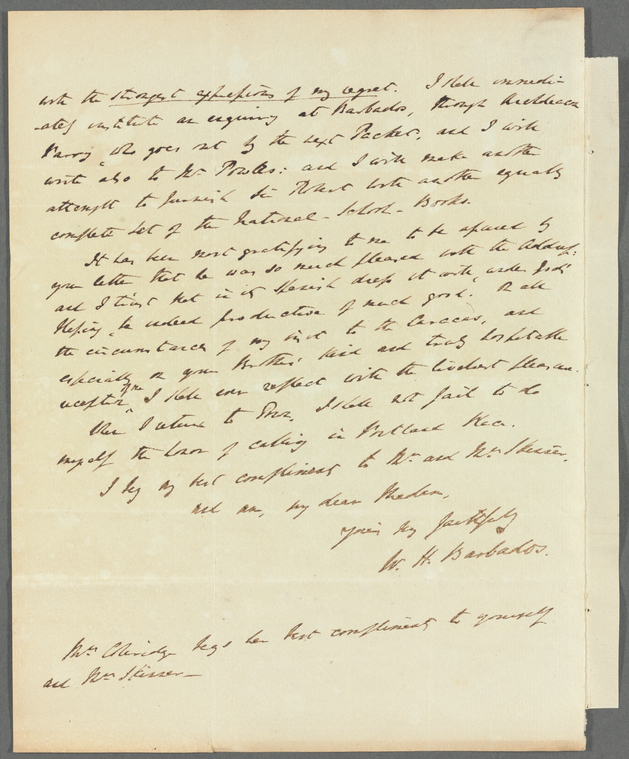 with the strongest expressions of my regret. I shall immedi-
-ately institute an enquiry at Barbados, through Archdeacon
Parry, who goes out by the next Packet, and I will
write also to Mr. Powles: and I will make another
attempt to furnish Sir Robert with another equally
complete set of the National-School-Books.
It has been most gratifying to me to be assured by
your letter that he was so much pleased with the Address:
and I trust that in its Spanish dress it will, under God's
blessing, be indeed productive of much good. On all
the circumstances of my visit to the Caraccas, and
especially on your Brother's kind and truly hospitable
reception of me, I shall ever reflect with the liveliest pleasure.
When I return to Town, I shall not fail to do
myself the honor of calling in Portland Place.
I beg my best compliments to Mr. and Mrs.
and am, my dear Madam,
yours very faithfully
W. H. Barbados.
Mrs. Coleridge begs her best compliments to yourself
and Mrs.